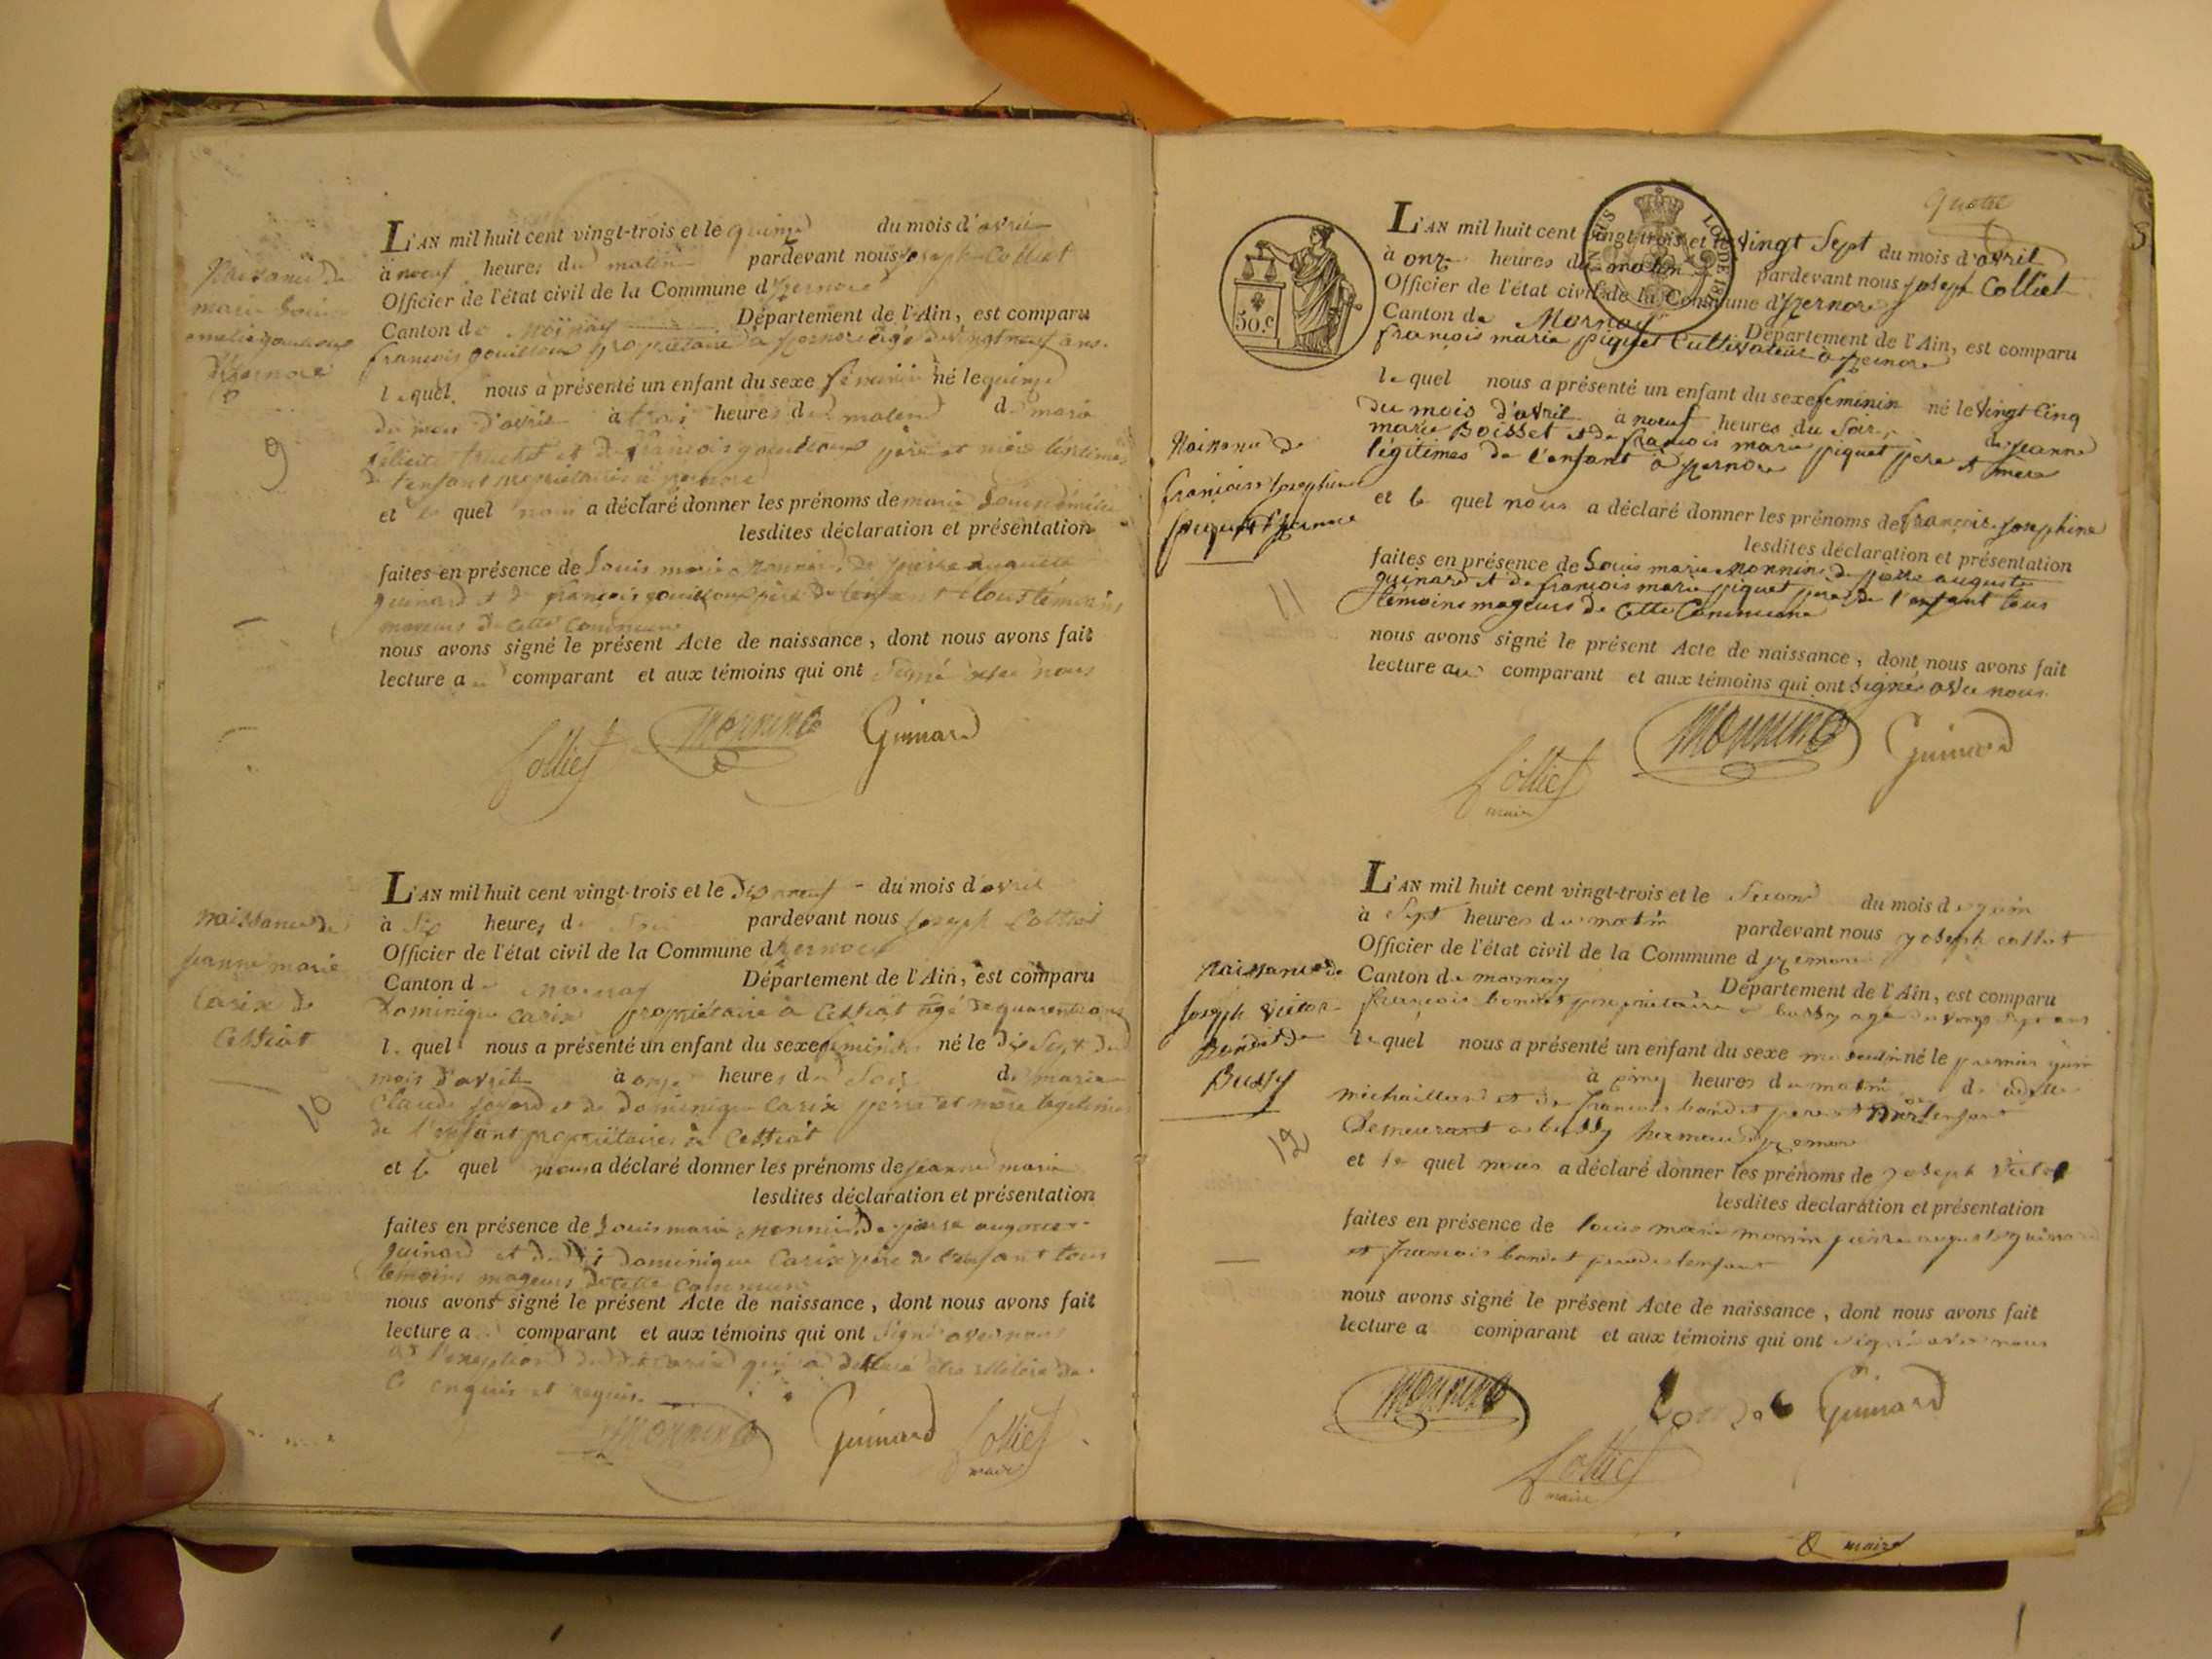 Naissance de
marie Louise
emelie gouilloux
d'izernore
9
L'AN mil huit cent vingt-trois et le quinze du mois d'avril
à neuf heures du matin pardevant nous joseph Colliet
Officier de l'état civil de la Commune d'izernore
Canton de Département de l'Ain, est comparu
francois gouilloux propriétaire à izernore âgé de vingt neuf ans.
lequel nous a présenté un enfant du sexe féminin né le quinze
du mois d'avril à trois heures du matin de marie
félicité et de francois gouilloux père et mère légitimes
de l'enfant propriétaires à izernore
et le quel nous a déclaré donner les prénoms de marie Louise émélie
lesdites déclaration et présentation
faites en présence de Louis marie monnin, de pierre auguste
guinard et de françois gouilloux père de l'enfant tous témoins
majeurs de cette commune
nous avons signé le présent Acte de naissance, dont nous avons fait
lecture au comparant et aux témoins qui ont signé avec nous
Colliet Monnin Guinard
naissance de
jeanne marie
Carix de
Cessiat
10
L'AN mil huit cent vingt-trois et le dix neuf du mois d'avril
à six heures du soir pardevant nous joseph Colliet
Officier de l'état civil de la Commune d'izernore
Canton de mornay Département de l'Ain, est comparu
Dominique carix propriétaire à Cessiat âgé de quarente ans
lequel nous a présenté un enfant du sexe féminin né le dix sept du
mois d'avril à onze heures du soir de marie
Claude et de dominique Carix père et mère légitimes
de l'enfant propriétaires à Cessiat
et le quel nous a déclaré donner les prénoms de jeanne marie
lesdites déclaration et présentation
faites en présence de Louis marie monnin, de pierre auguste
guinard et dudit dominique Carix père de l'enfant tous
témoins mageurs de cette commune
nous avons signé le présent Acte de naissance, dont nous avons fait
lecture au comparant et aux témoins qui ont signé avec nous
à l'exception dudit carix qui a déclaré être illitéré de
ce enquis et requis.
Monnin Guinard Colliet
maire
8
50.c
Naissance de
francoise josephine
piquet d'izernore
11
L'AN mil huit cent vingt-trois et le vingt sept du mois d'avril
à onze heures du matin pardevant nous joseph Colliet
Officier de l'état civil de la Commune d'izernore
Canton de Mornay Département de l'Ain, est comparu
françois marie piquet Cultivateur à izernore
lequel nous a présenté un enfant du sexe feminin né le vingt cinq
du mois d'avril à neuf heures du soir, de jeanne
marie poisset et de françois marie piquet père et mère
légitimes de l'enfant à izernore
et le quel nous a déclaré donner les prénoms de françoise josephine
lesdites déclaration et présentation
faites en présence de Louis marie monnin, de pierre auguste
guinard et de françois marie piquet père de l'enfant tous
témoins mageurs de cette Commune
nous avons signé le présent Acte de naissance, dont nous avons fait
lecture au comparant et aux témoins qui ont signés avec nous
Colliet Monnin Guinard
maire
naissance de
joseph victor
Bondet de
Bussy
12
L'AN mil huit cent vingt-trois et le second du mois de juin
à sept heures du matin pardevant nous joseph colliet
Officier de l'état civil de la Commune d'izernore
Canton de mornay Département de l'Ain, est comparu
françois bondet propriétaire a bussy agé de vingt sept ans
lequel nous a présenté un enfant du sexe masculin né le premier juin
à cinq heures du matin de
michaillard et de francois bondet père et mère de lenfant
Demeurant a bussy hameau d'izernore
et le quel nous a déclaré donner les prénoms de joseph victor
lesdites déclaration et présentation
faites en présence de louis marie monnin pierre auguste guinard
et francois bondet père de lenfant
nous avons signé le présent Acte de naissance, dont nous avons fait
lecture a comparant et aux témoins qui ont signé avec nous
Monnin Guinard
Colliet
maire
maire